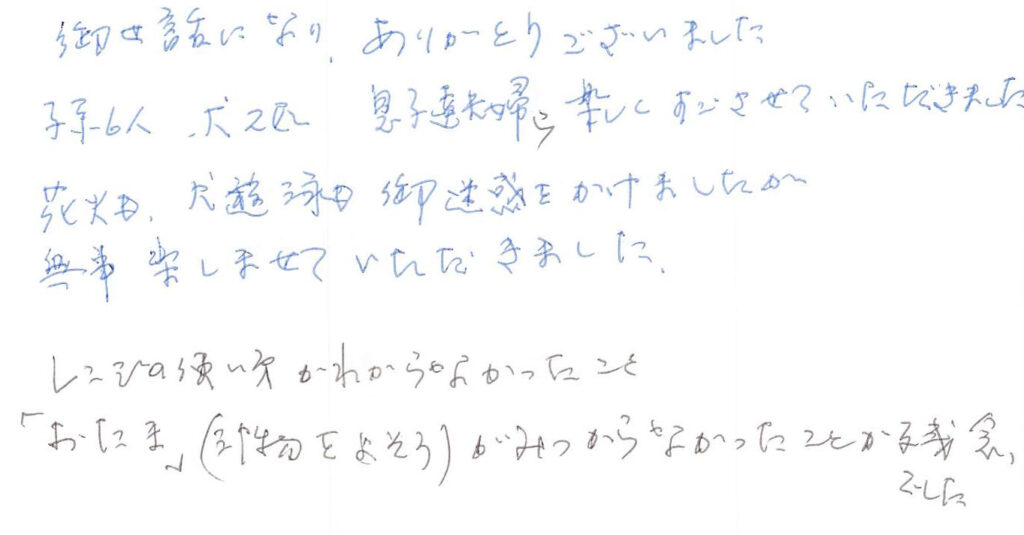 御世話になり、ありがとうございました
子孫6人、犬2匹 息子達夫婦ら 楽しくすごさせていただきました
花火も、犬遊泳も御迷惑をかけましたが
無事楽しませていただきました。
レンジの使い方がわからなかったこと
「おたま」(汁物をよそう)がみつからなかったことが残念、
でした